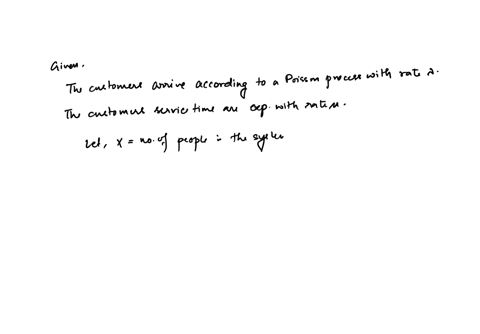 Given.
The customers arrive according to a Poisson process with rate λ.
The customers service time are exp. with rate μ.
Let, X = no. of people in the system